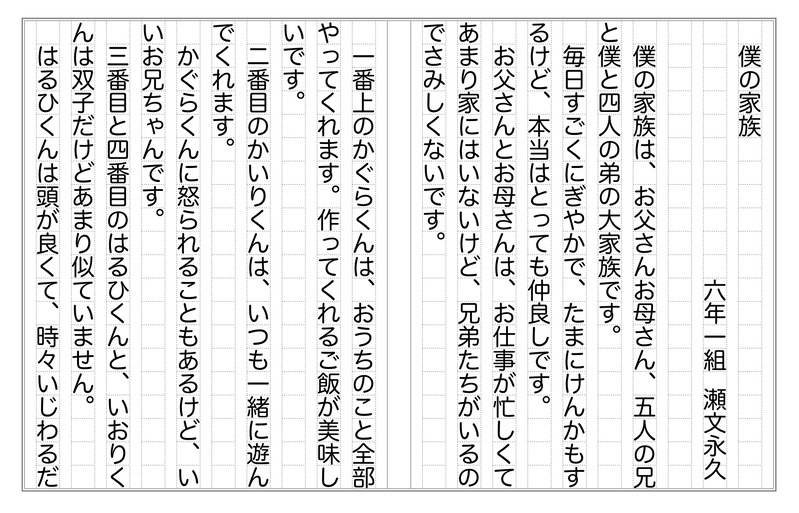 僕の家族
六年一組 瀬文永久
僕の家族は、お父さんお母さん、五人の兄
と僕と四人の弟の大家族です。
毎日すごくにぎやかで、たまにけんかもす
るけど、本当はとっても仲良しです。
お父さんとお母さんは、お仕事が忙しくて
あまり家にはいないけど、兄弟たちがいるの
でさみしくないです。
一番上のかぐらくんは、おうちのこと全部
やってくれます。作ってくれるご飯が美味し
いです。
二番目のかいりくんは、いつも一緒に遊ん
でくれます。
かぐらくんに怒られることもあるけど、い
いお兄ちゃんです。
三番目と四番目のはるひくんと、いおりく
んは双子だけどあまり似ていません。
はるひくんは頭が良くて、時々いじわるだ